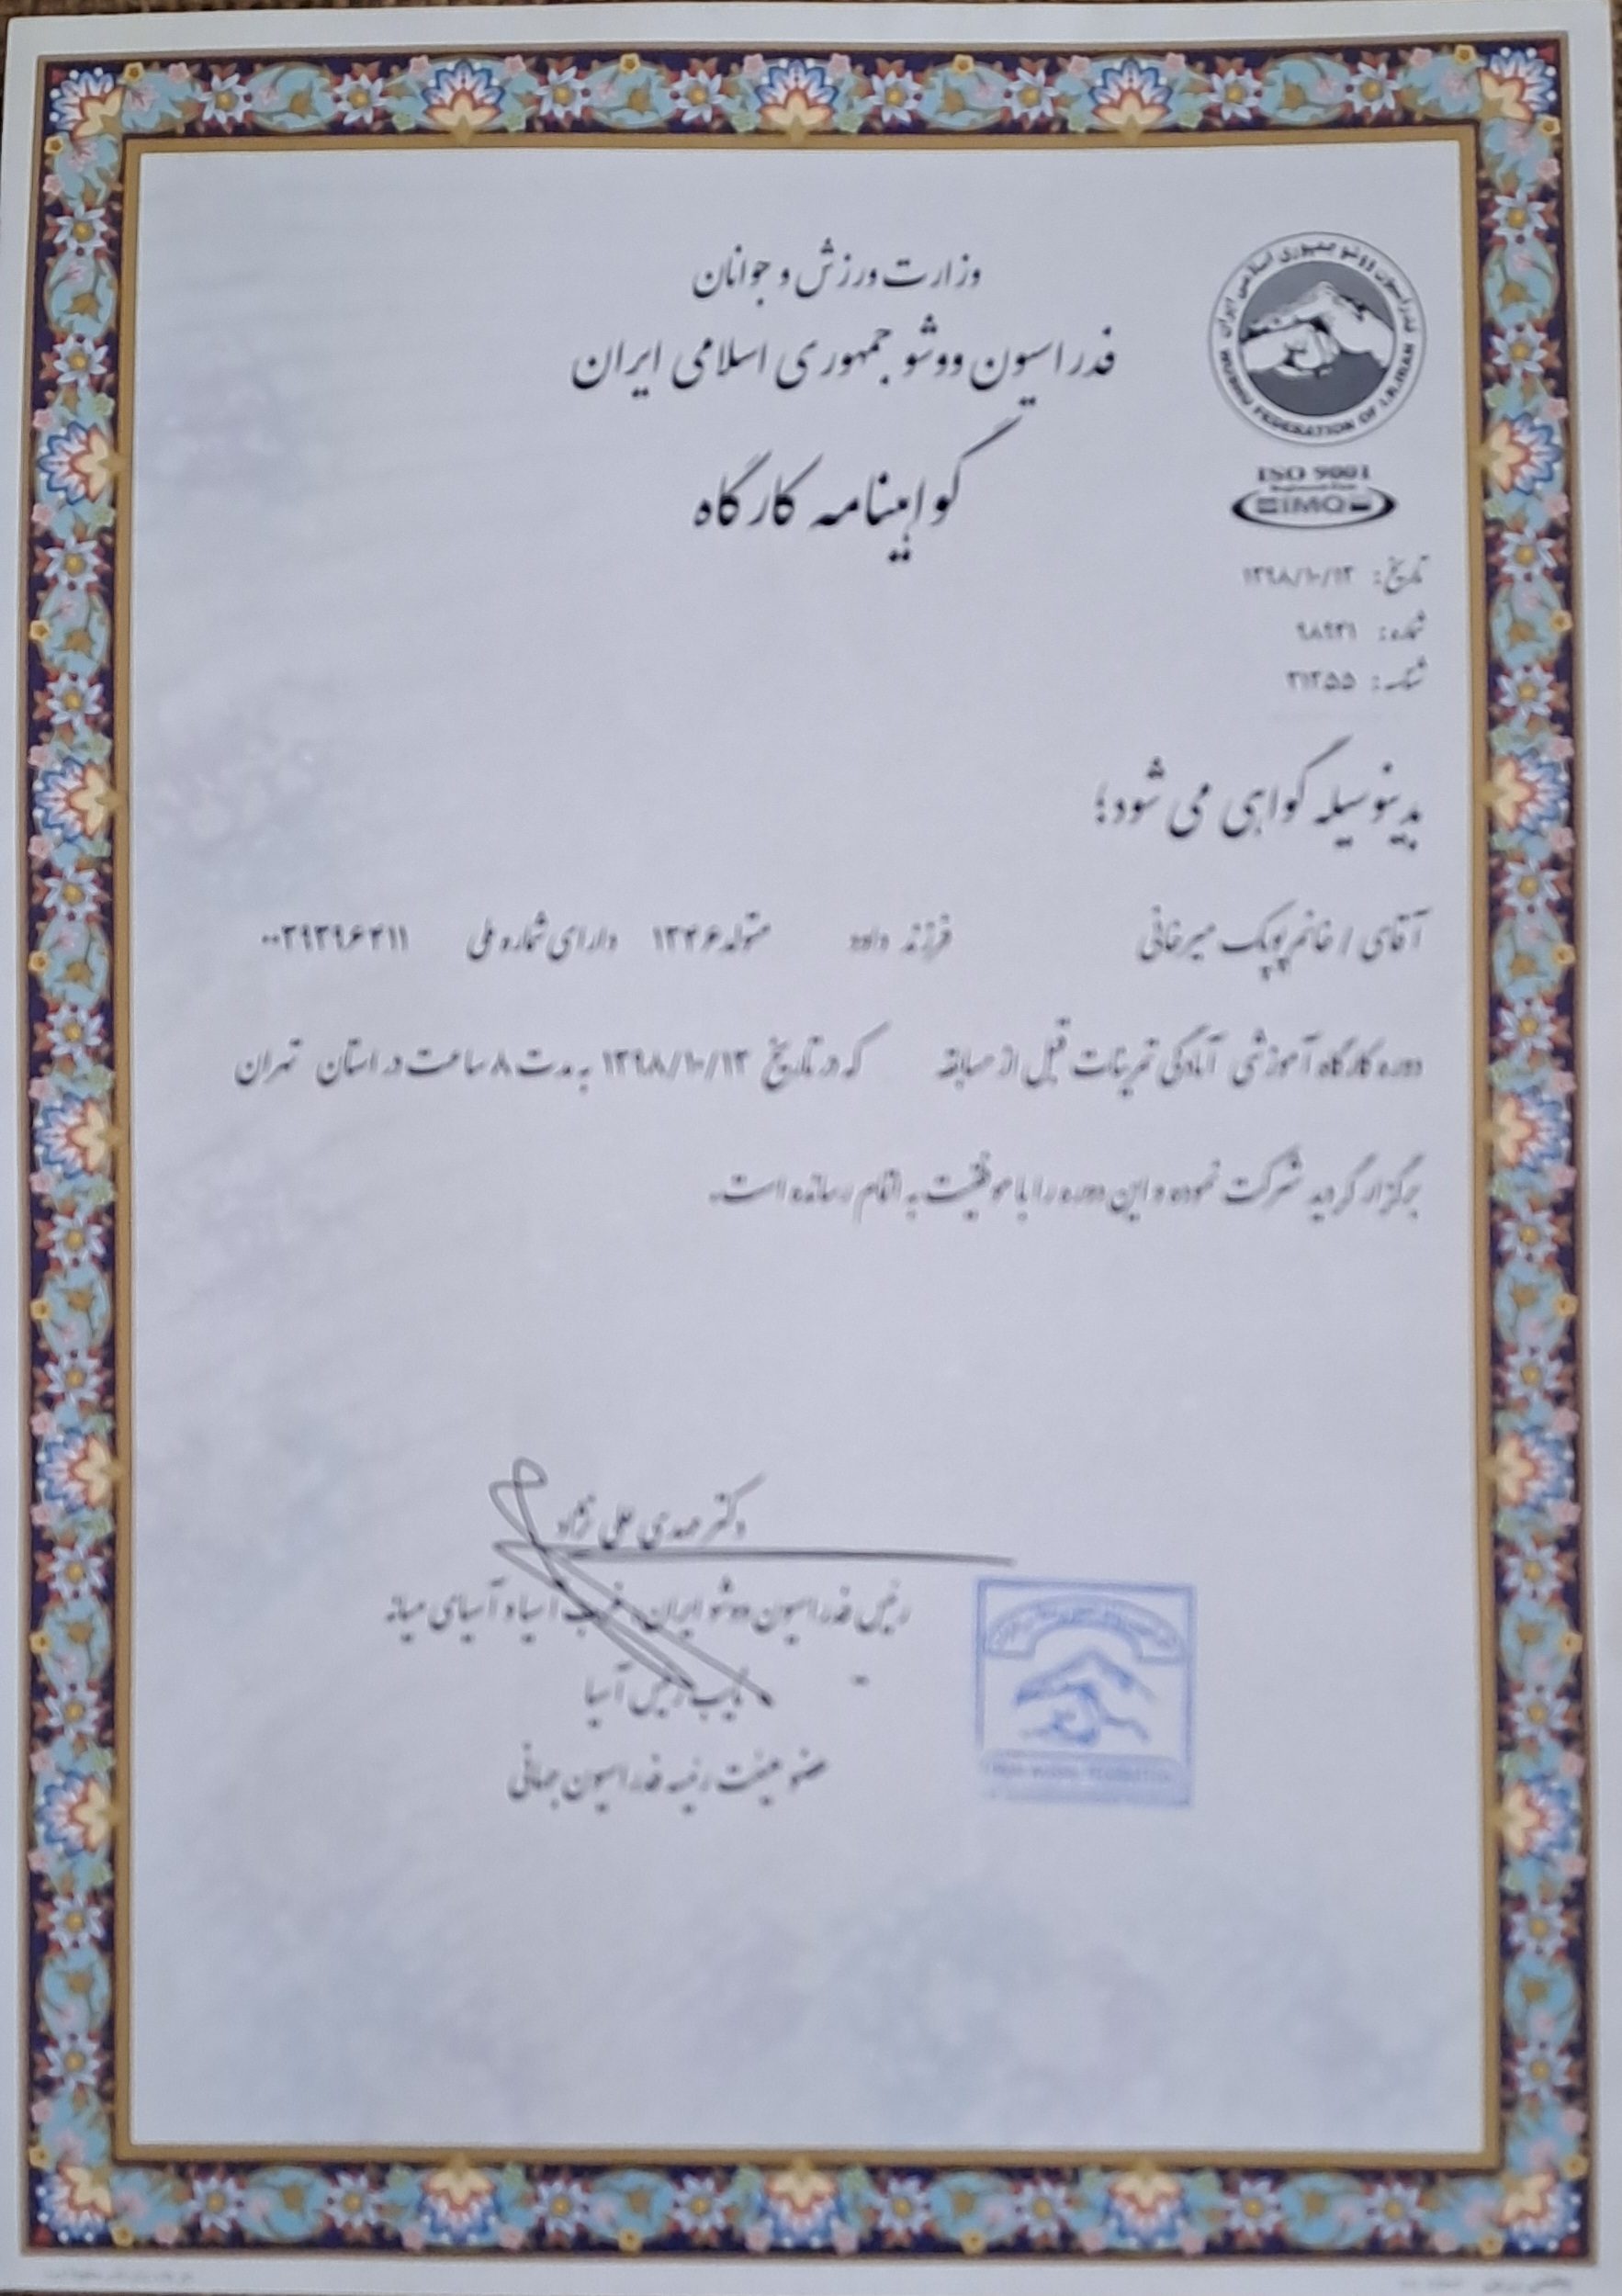 وزارت ورزش و جوانان
فدراسیون ووشو جمهوری اسلامی ایران
گواهینامه کارگاه
فدراسیون ووشو جمهوری اسلامی ایران
WUSHU FEDERATION OF I.R.IRAN
ISO 9001
IMQ
تاریخ: ۱۳۹۸/۱۰/۱۳
شماره:
شناسه:
بدینوسیله گواهی می شود؛
آقای / خانم پوپک میرخانی فرزند داود متولد ۱۳۴۶ دارای شماره ملی
دوره کارگاه آموزشی آمادگی تمرینات قبل از مسابقه که در تاریخ ۱۳۹۸/۱۰/۱۳ به مدت ۸ ساعت در استان تهران
برگزار گردید شرکت نموده و این دوره را با موفقیت به اتمام رسانده است.
دکتر مهدی علی نژاد
رئیس فدراسیون ووشو ایران، غرب آسیا و آسیای میانه
نایب رئیس آسیا
عضو هیئت رئیسه فدراسیون جهانی